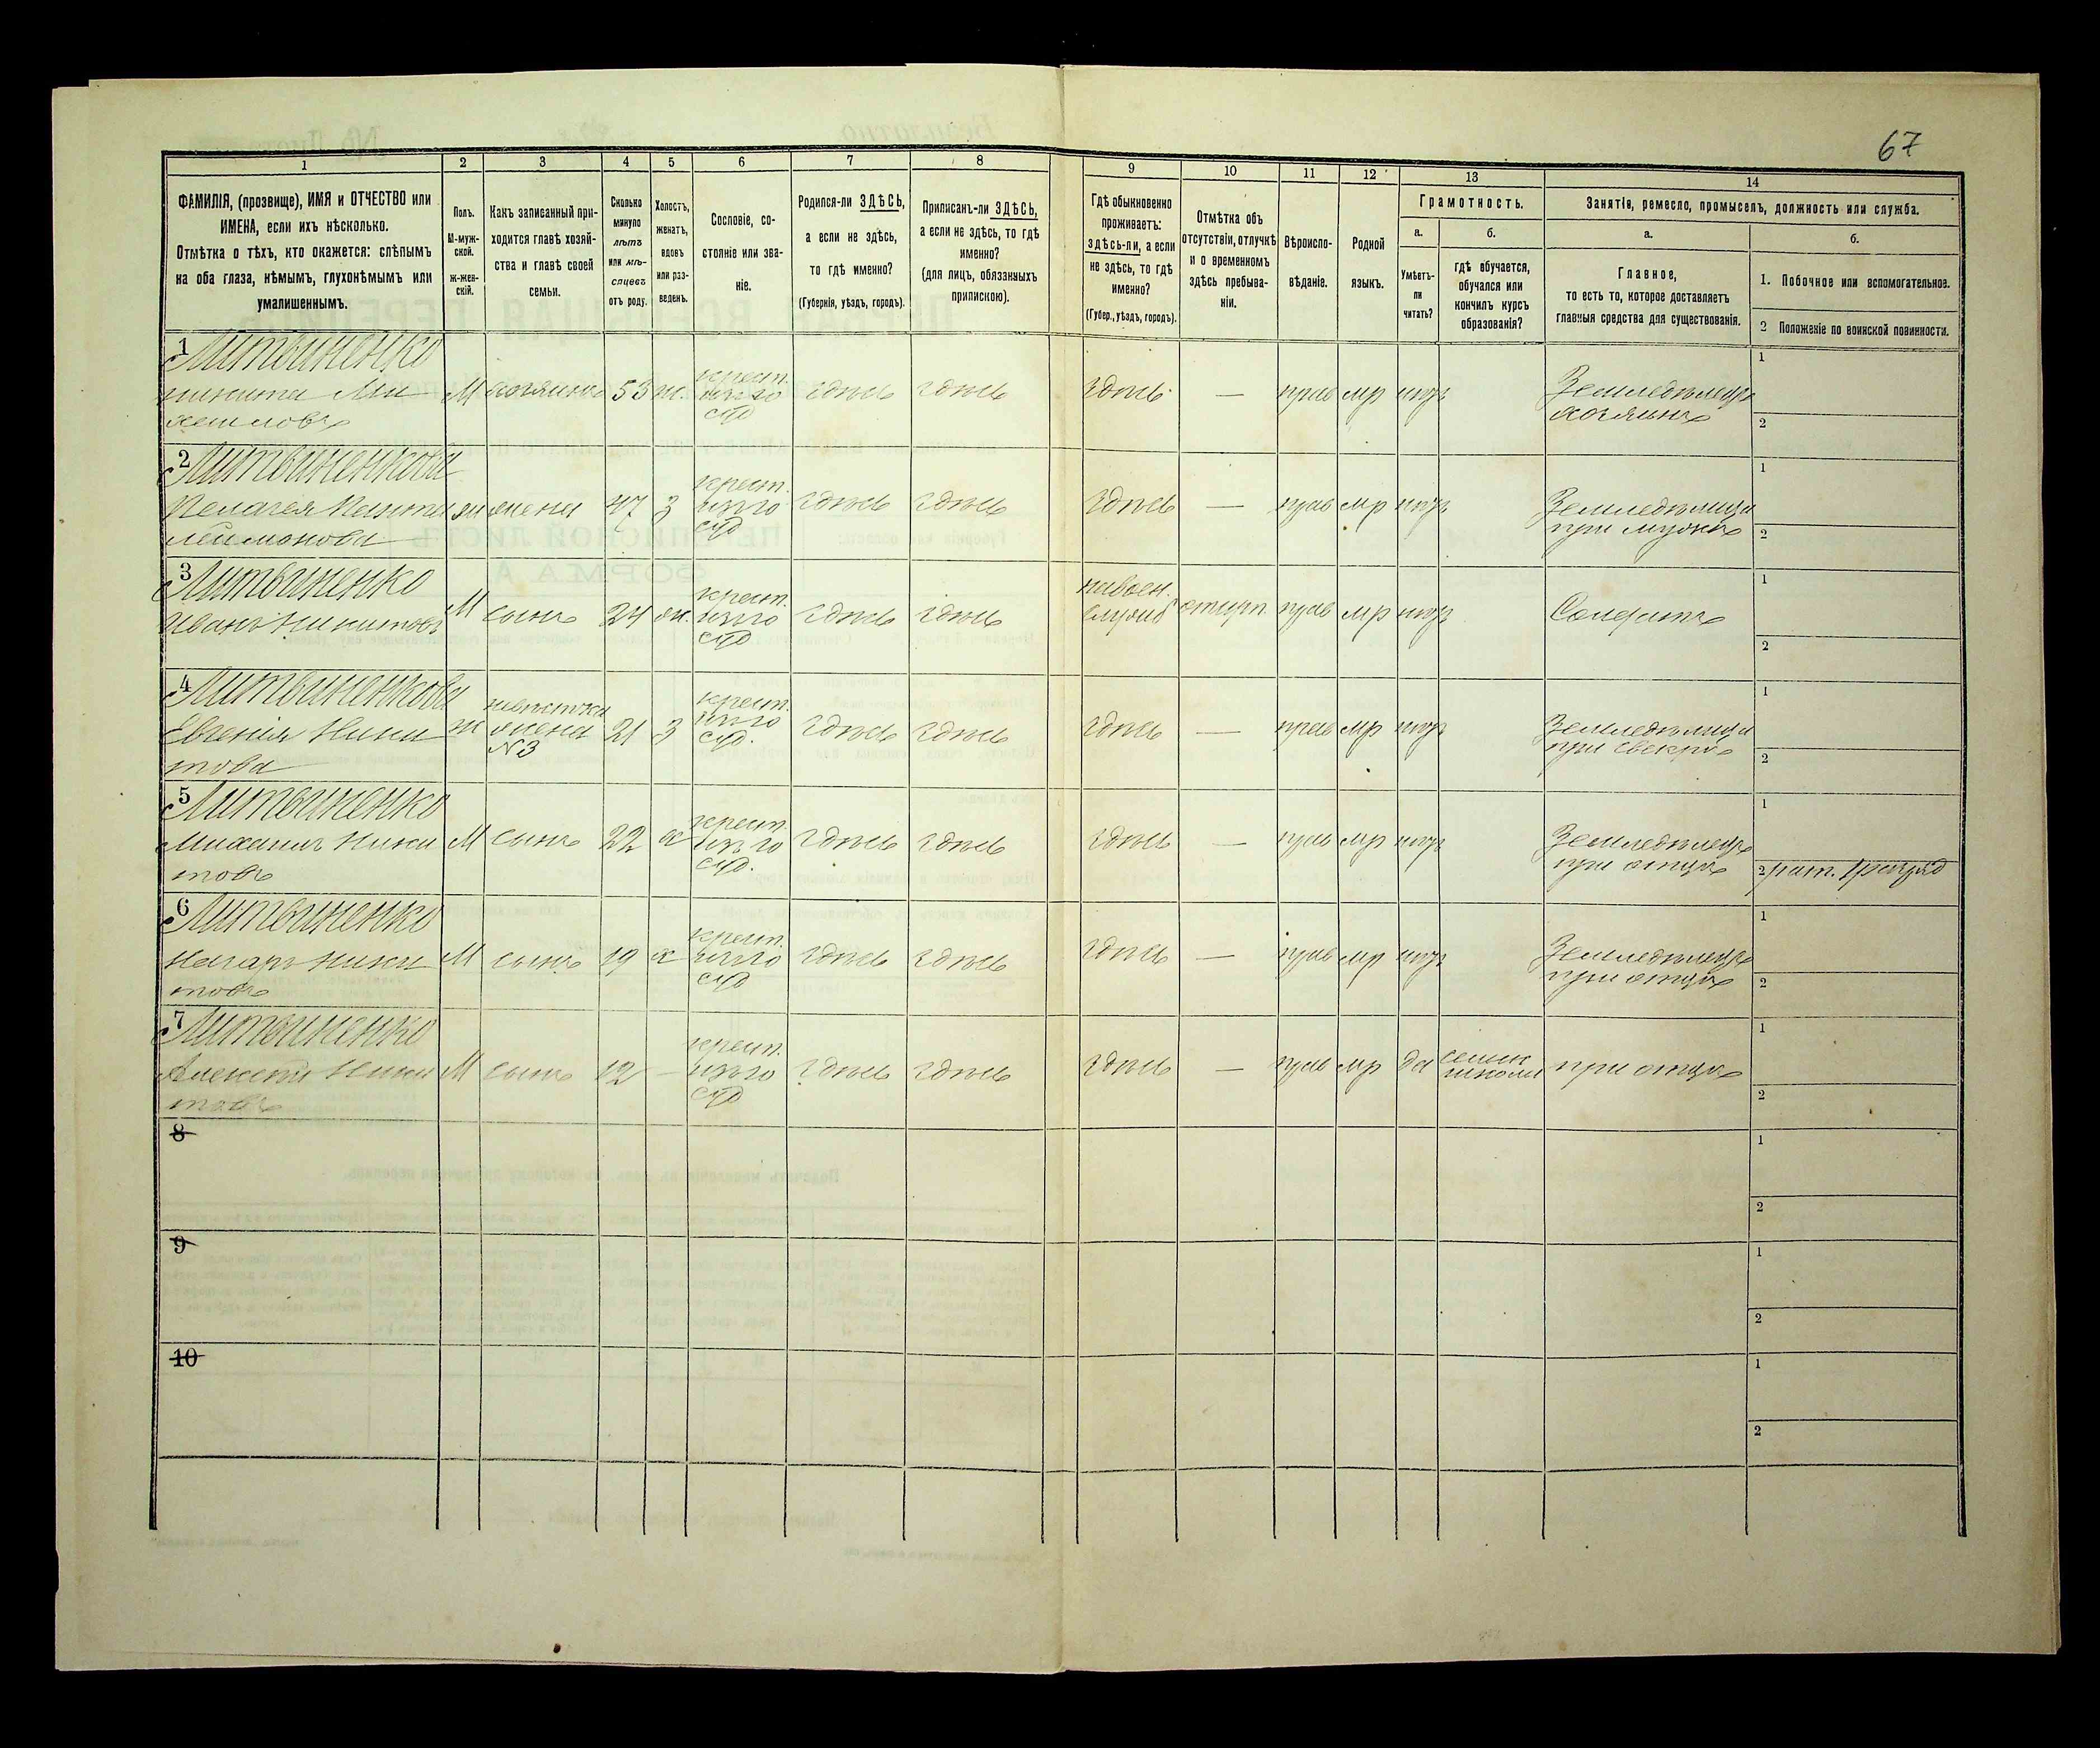 67
1 2 3 4 5 6 7 8 9 10 11 12 13 14
ФАМИЛІЯ, (прозвище), ИМЯ и ОТЧЕСТВО или
ИМЕНА, если ихъ нѣсколько.
Отмѣтка о тѣхъ, кто окажется: слѣпымъ
на оба глаза, нѣмымъ, глухонѣмымъ или
умалишеннымъ.
Полъ.
М-муж-
ской.
ж-жен-
скій.
Какъ записанный при-
ходится главѣ хозяй-
ства и главѣ своей
семьи.
Сколько
минуло
лѣтъ
или мѣ-
сяцевъ
отъ роду.
Холостъ,
женатъ,
вдовъ
или раз-
веденъ.
Сословіе, со-
стояніе или зва-
ніе.
Родился-ли ЗДѢСЬ,
а если не здѣсь,
то гдѣ именно?
(Губернія, уѣздъ, городъ).
Приписанъ-ли ЗДѢСЬ,
а если не здѣсь, то гдѣ
именно?
(для лицъ, обязанныхъ
припискою).
Гдѣ обыкновенно
проживаетъ:
здѣсь-ли, а если
не здѣсь, то гдѣ
именно?
(Губер., уѣздъ, городъ).
Отмѣтка объ
отсутствіи, отлучкѣ
и о временномъ
здѣсь пребыва-
ніи.
Вѣроиспо-
вѣданіе.
Родной
языкъ.
Грамотность.
а.
Умѣетъ-
ли
читать?
б.
гдѣ обучается,
обучался или
кончилъ курсъ
образованія?
Занятія, ремесло, промыселъ, должность или служба.
а.
Главное,
то есть то, которое доставляетъ
главныя средства для существованія.
б.
1. Побочное или вспомогательное.
2 Положеніе по воинской повинности.
1 Литвиненко
Никита Ми
хаиловъ
М хозяинъ 53 ж. крест. здѣсь здѣсь здѣсь — прав мр
Земледѣлецъ
хозяинъ
1
2
2 Литвиненкова
Пелагея
ж жена 47 з крест. здѣсь здѣсь здѣсь — прав мр
Земледѣлица
при мужѣ
1
2
3 Литвиненко
Иванъ Никитовъ
М сынъ 24 ж. крест. здѣсь здѣсь прав мр
Солдатъ
1
2
4 Литвиненкова
Евгенія Ники
това
ж невѣстка
жена
N3
21 з крест. здѣсь здѣсь здѣсь — прав мр
Земледѣлица
при свекрѣ
1
2
5 Литвиненко
Михаилъ Ники
товъ
М сынъ 22 х крест. здѣсь здѣсь здѣсь — прав мр
Земледѣлецъ
при отцѣ
1
2 рат. 1 разряд
6 Литвиненко
Назаръ Ники
товъ
М сынъ 19 х крест. здѣсь здѣсь здѣсь — прав мр
Земледѣлецъ
при отцѣ
1
2
7 Литвиненко
Алексѣй Ники
товъ
М сынъ 12 — крест. здѣсь здѣсь здѣсь — прав мр да
школѣ
при отцѣ
1
2
8
1
2
9
1
2
10
1
2